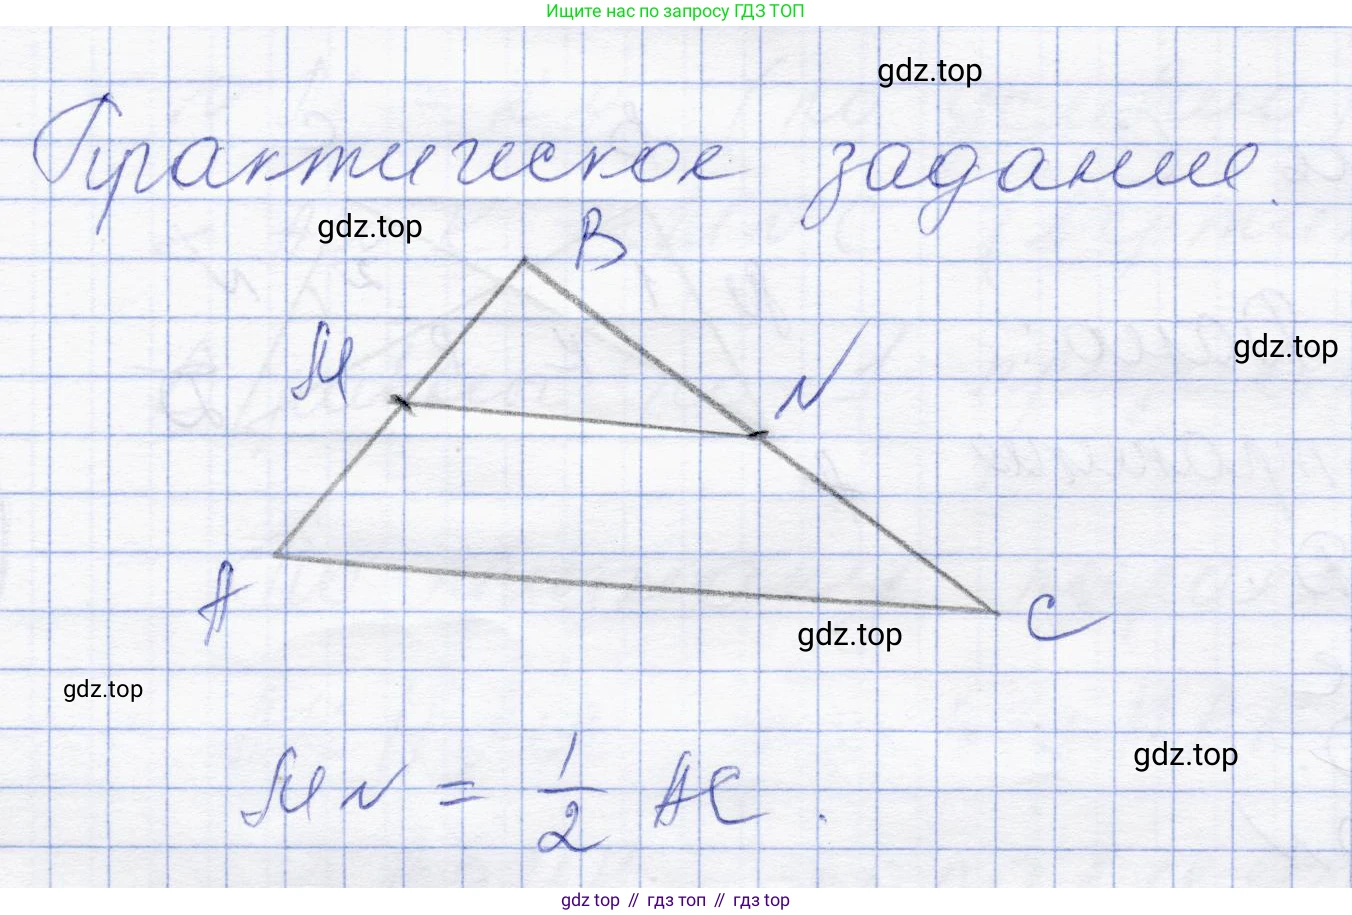 Ищите нас по запросу ГДЗ ТОП
gdz.top
Практическое задание.
gdz.top
B
M
N
gdz.top
A
C
gdz.top
gdz.top
gdz.top
MN = 1/2 AC.
gdz top // гдз топ // гдз top